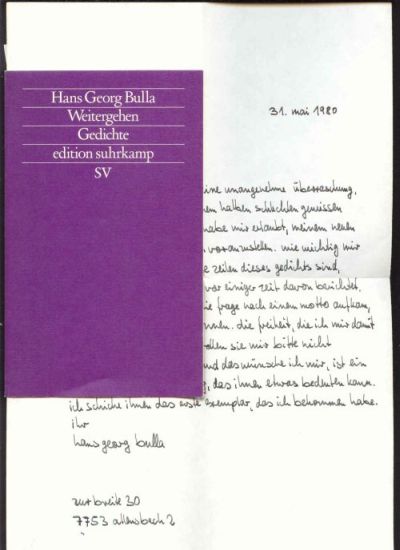 Hans Georg Bulla
Weitergehen
Gedichte
edition suhrkamp
SV
31. mai 1980
ine unangenehme überraschung,
en halben schlechten gewissen
habe mir erlaubt, meinem neuen
voranzustellen. wie wichtig mir
e zeilen dieses gedichts sind,
vor einiger zeit davon berichtet.
ie frage nach einem motto aufkam,
nnen. die freiheit, die ich mir damit
ollen sie mir bitte nicht
nd das wünsche ich mir, ist ein
, das ihnen etwas bedeuten kann.
ich schicke ihnen das erste exemplar, das ich bekommen habe.
ihr
hans georg bulla
zur breite 30
7753 allensbach 2